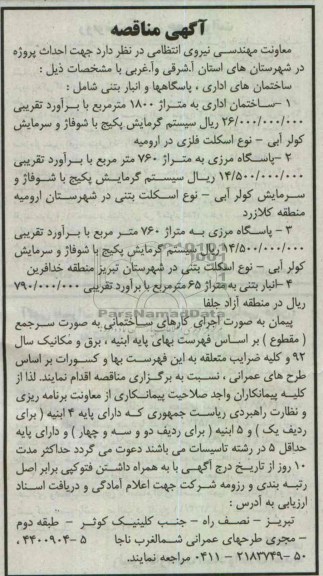 آگهی مناقصه
معاونت مهندسی نیروی انتظامی در نظر دارد جهت احداث پروژه
در شهرستان های استان آ.شرقی وآ.غربی با مشخصات ذیل :
ساختمان های اداری ، پاسگاهها و انبار بتنی شامل :
۱ -ساختمان اداری به متراژ ۱۸۰۰ مترمربع با برآورد تقریبی
۲۶/۰۰۰/۰۰۰/۰۰۰ ریال سیستم گرمایش پکیج با شوفاژ و سرمایش
کولر آبی - نوع اسکلت فلزی در ارومیه
۲ -پاسگاه مرزی به متراژ ۷۶۰ متر مربع با برآورد تقریبی
۱۴/۵۰۰/۰۰۰/۰۰۰ ریال سیستم گرمایش پکیج با شوفاژ و
سرمایش کولر آبی - نوع اسکلت بتنی در شهرستان ارومیه
منطقه کلاژرد
۳ - پاسگاه مرزی به متراژ ۷۶۰ متر مربع با برآورد تقریبی
۱۴/۵۰۰/۰۰۰/۰۰۰ ریال سیستم گرمایش پکیج با شوفاژ و سرمایش
کولر آبی - نوع اسکلت بتنی در شهرستان تبریز منطقه خدافرین
۴ -انبار بتنی به متراژ ۶۵ مترمربع با برآورد تقریبی ۷۹۰/۰۰۰/۰۰۰
ریال در منطقه آزاد جلفا
ParsNamadData
پیمان به صورت اجرای کارهای ساختمانی به صورت سرجمع
( مقطوع ) بر اساس فهرست بهای پایه ابنیه ، برق و مکانیک سال
۹۲ و کلیه ضرایب متعلقه به این فهرست بها و کسورات بر اساس
طرح های عمرانی ، نسبت به برگزاری مناقصه اقدام نمایند. لذا از
کلیه پیمانکاران واجد صلاحیت پیمانکاری از معاونت برنامه ریزی
و نظارت راهبردی ریاست جمهوری که دارای پایه ۴ ابنیه ( برای
ردیف یک ) و ۵ ابنیه ( برای ردیف دو و سه و چهار ) و دارای پایه
حداقل ۵ در رشته تاسیسات می باشند دعوت می گردد حداکثر مدت
۱۰ روز از تاریخ درج آگهی با به همراه داشتن فتوکپی برابر اصل
رتبه بندی و رزومه شرکت جهت اعلام آمادگی و دریافت اسناد
ارزیابی به آدرس :
تبریز - نصف راه - جنب کلینیک کوثر - طبقه دوم
- مجری طرحهای عمرانی شمالغرب ناجا ۵ -۴۴۰۰۹۰۴ ،
۵۰ -۲۱۸۳۷۴۹ - ۰۴۱۱ مراجعه نمایند.